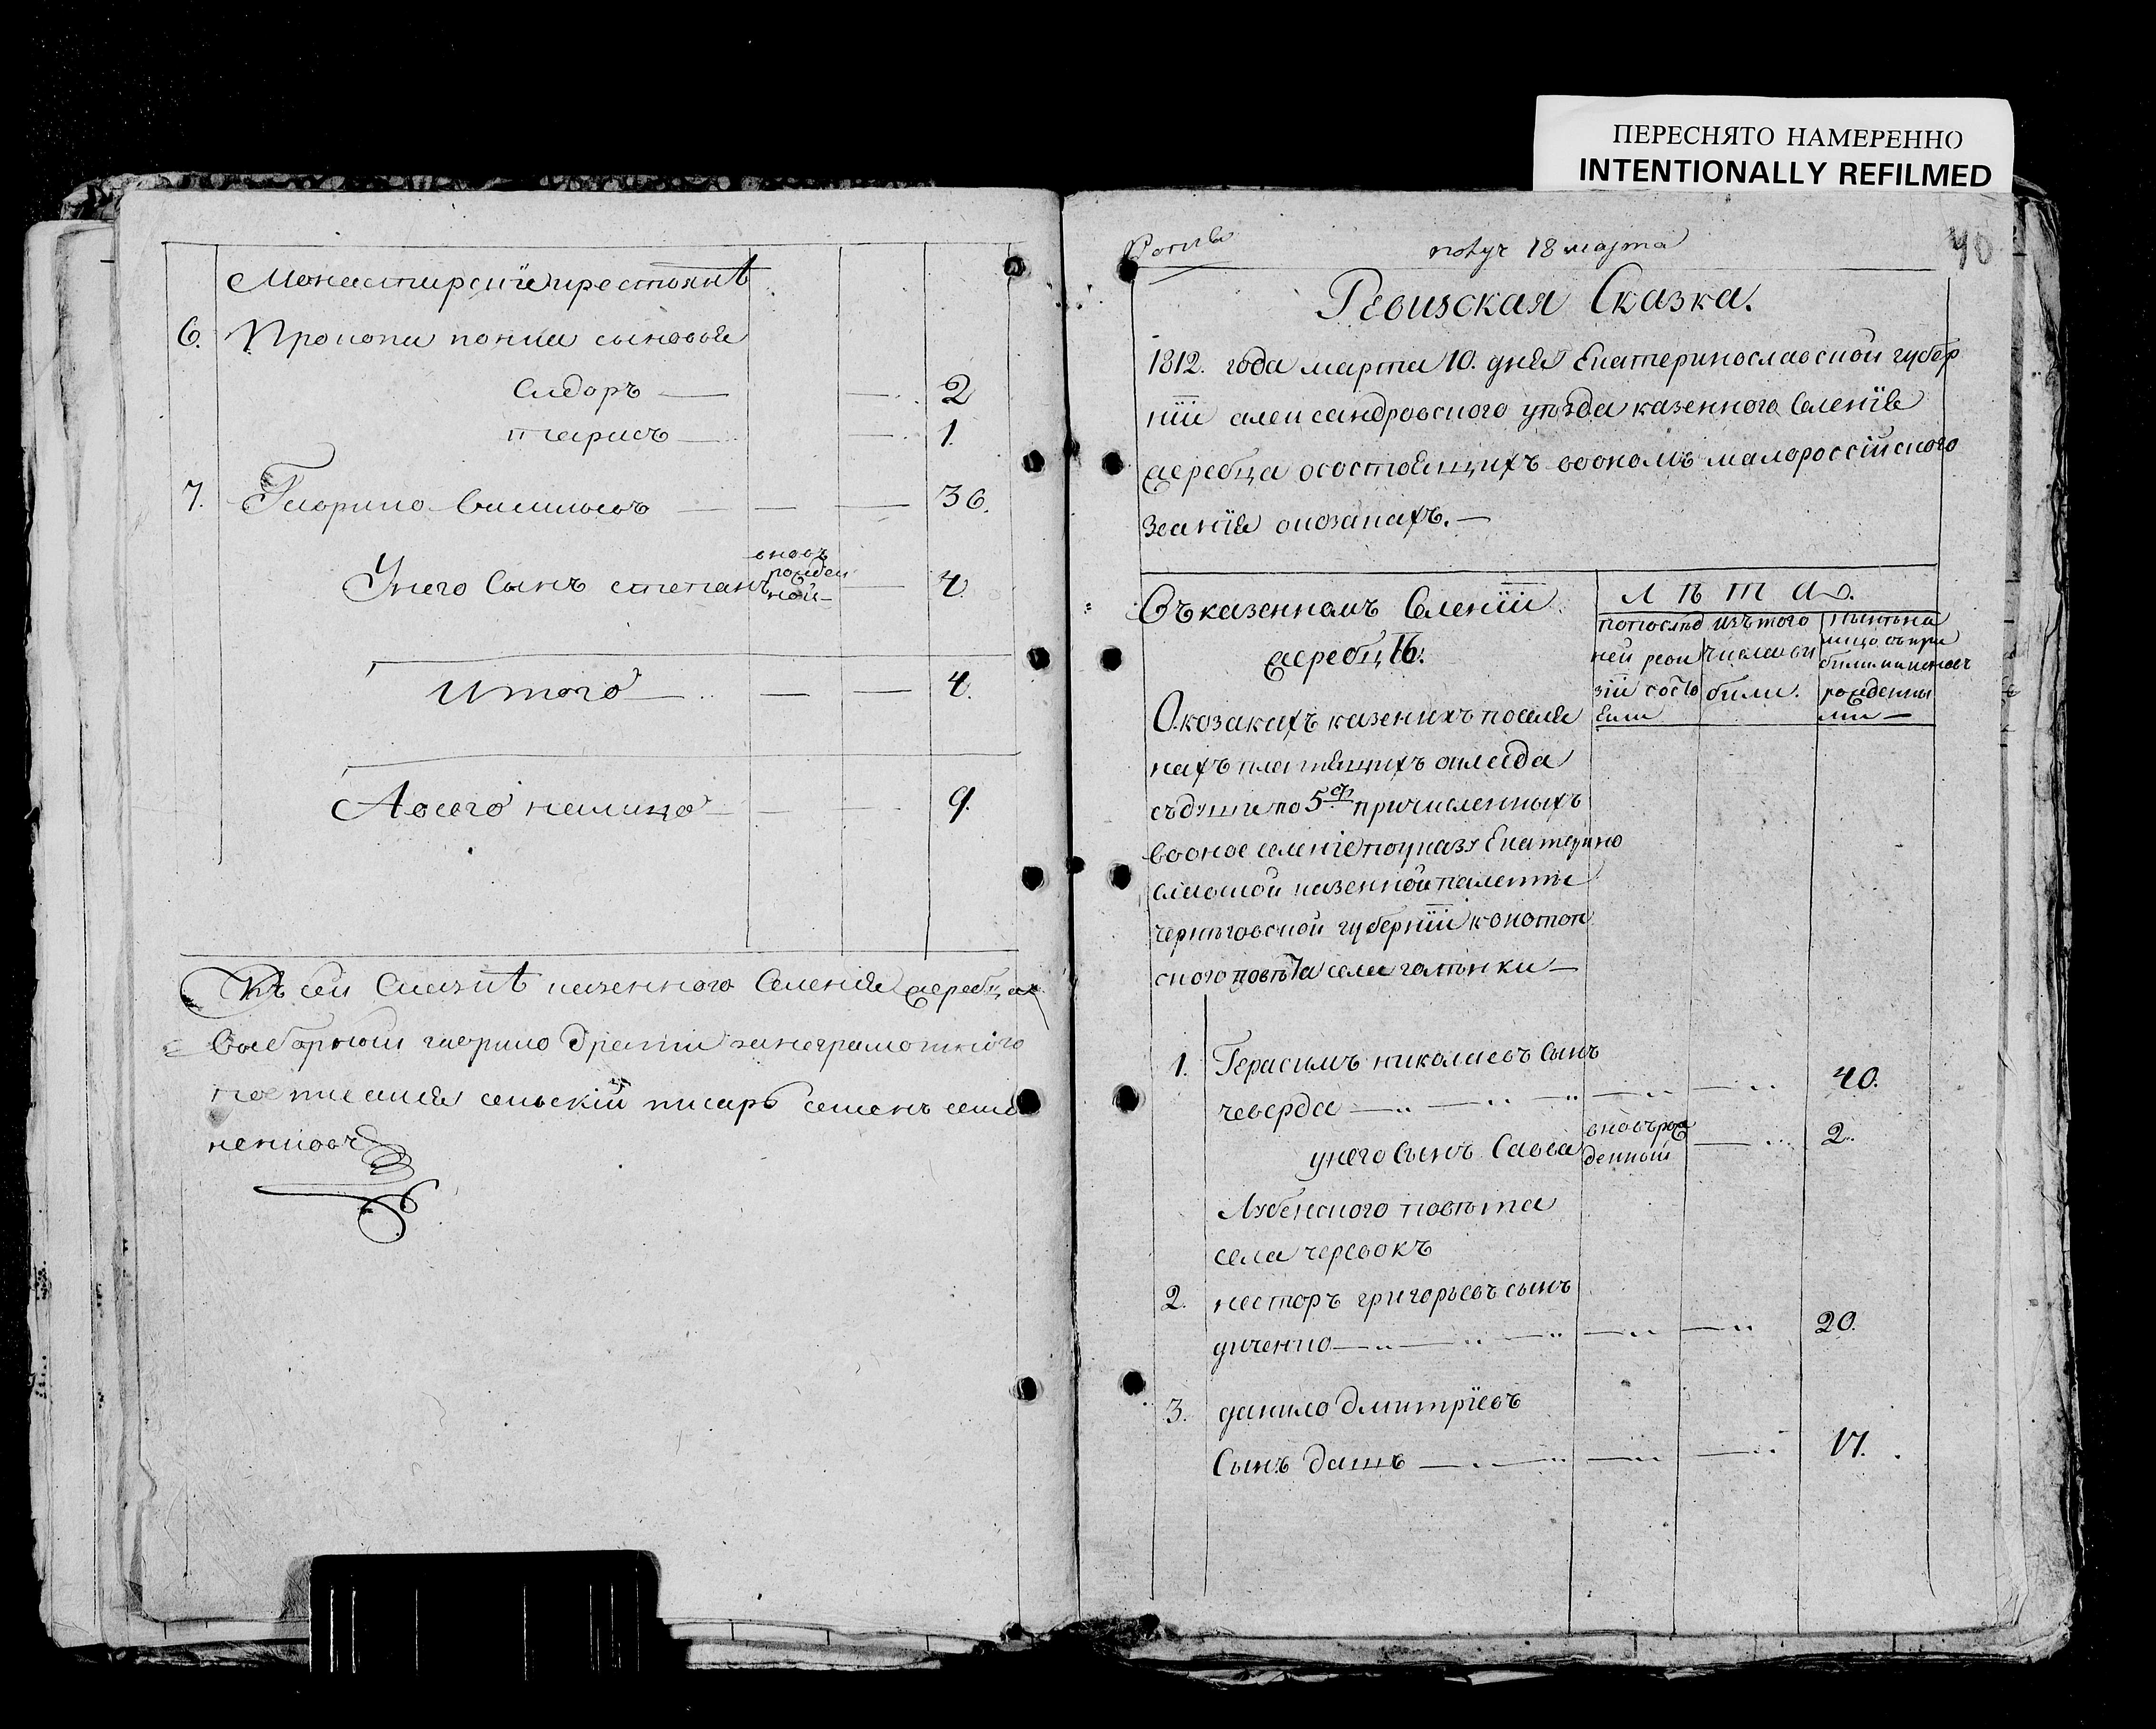 ПЕРЕСНЯТО НАМЕРЕННО
INTENTIONALLY REFILMED
Монастирскіе крестьянѣ
6. Прокопа сыновья
Сидоръ — — 2
тарасъ — — 1.
7. Гаврило Васильевъ — — — 36.
Унего Сынъ степанъ вновъ рожденной — — 4.
Итого — — — 4.
Авсего налицо — — — 9.
Къ сей Сказкѣ казенного Селенія жеребца
Выборный гаврило занеграмотного
сельскій писарь семенъ
получ 18 марта
40
Ревизская Сказка.
1812. года марта 10. дня Екатеринославской губер
ніи александровского уѣзда казенного Селенія
жеребца осостоящихъ вономъ малороссійского
званія окозакахъ. —
Въ казенномъ Селеніи
жеребцѣ.
Л ѣ т а.
попослѣд
ней реви
зіи состо
яли
изътого
числа ви
били.
Нынѣ на
лицо съ при
билими и новъ
рожденны
ми —
О козакахъ казенихъ поселя
нахъ платящихъ оклада
съ души по 5 р причисленныхъ
вооное селеніе поуказу Екатерино
славской казенной палаты
черниговской губерніи конотоп
ского повѣта села голѣнки —
1. Герасимъ николаевъ Сынъ
чеверда — — — — — 40.
унего Сынъ Савва вновърож денный — 2.
Лубенского повѣта
села чередокъ
2. несторъ григорьевъ сынъ
дяченко — — — — — 20.
3. данило дмитріевъ
Сынъ дашъ — — — — 17.